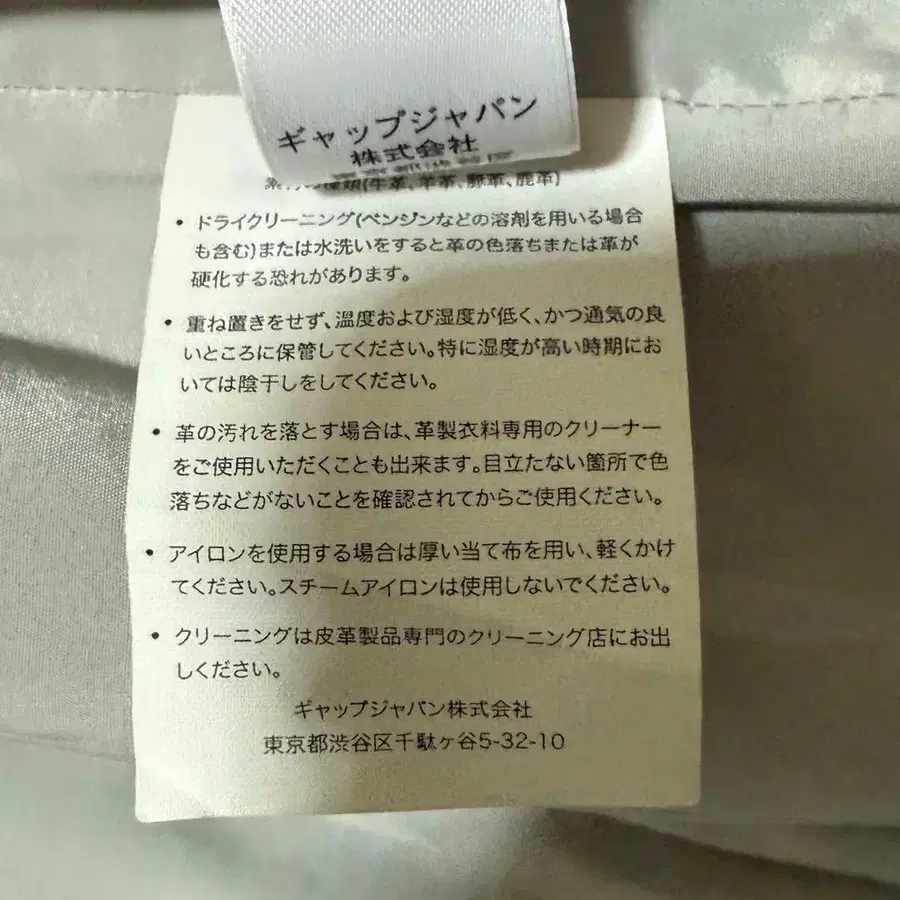 ギャップジャパン
株式会社
(牛革、羊革、豚革、鹿革)
• ドライクリーニング(ベンジンなどの溶剤を用いる場合
も含む)または水洗いをすると革の色落ちまたは革が
硬化する恐れがあります。
• 重ね置きをせず、温度および湿度が低く、かつ通気の良
いところに保管してください。特に湿度が高い時期にお
いては陰干しをしてください。
• 革の汚れを落とす場合は、革製衣料専用のクリーナー
をご使用いただくことも出来ます。目立たない箇所で色
落ちなどがないことを確認されてからご使用ください。
• アイロンを使用する場合は厚い当て布を用い、軽くかけ
てください。スチームアイロンは使用しないでください。
• クリーニングは皮革製品専門のクリーニング店にお出
しください。
ギャップジャパン株式会社
東京都渋谷区千駄ヶ谷5-32-10